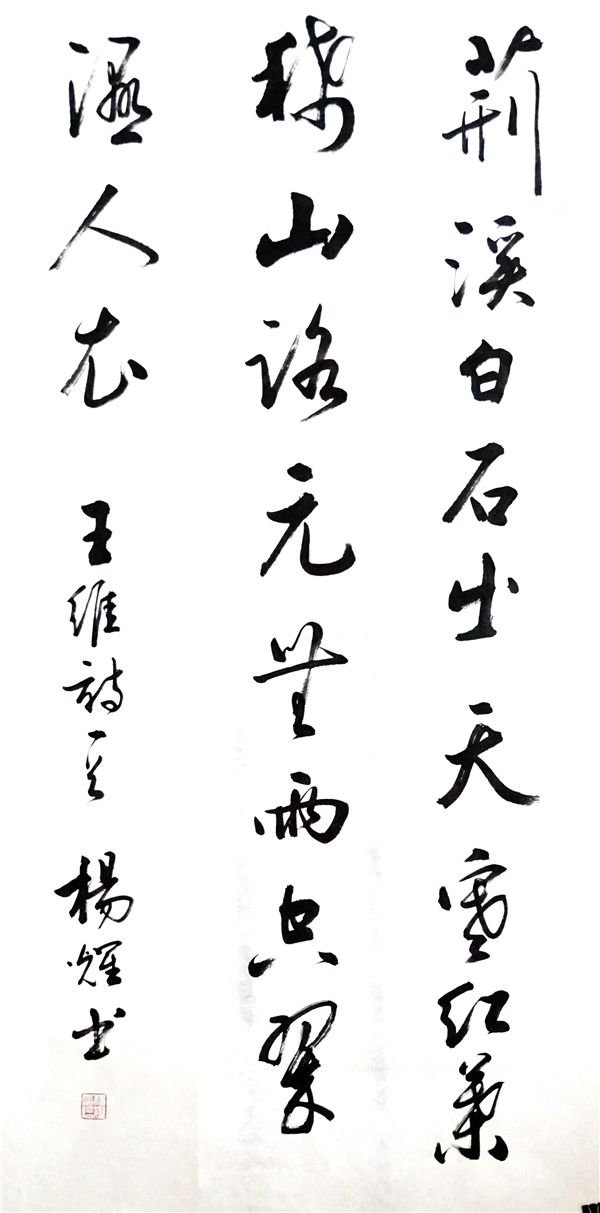 荆溪白石出天寒红葉
稀山路元無雨空翠
濕人衣
王維詩一首
楊耀书